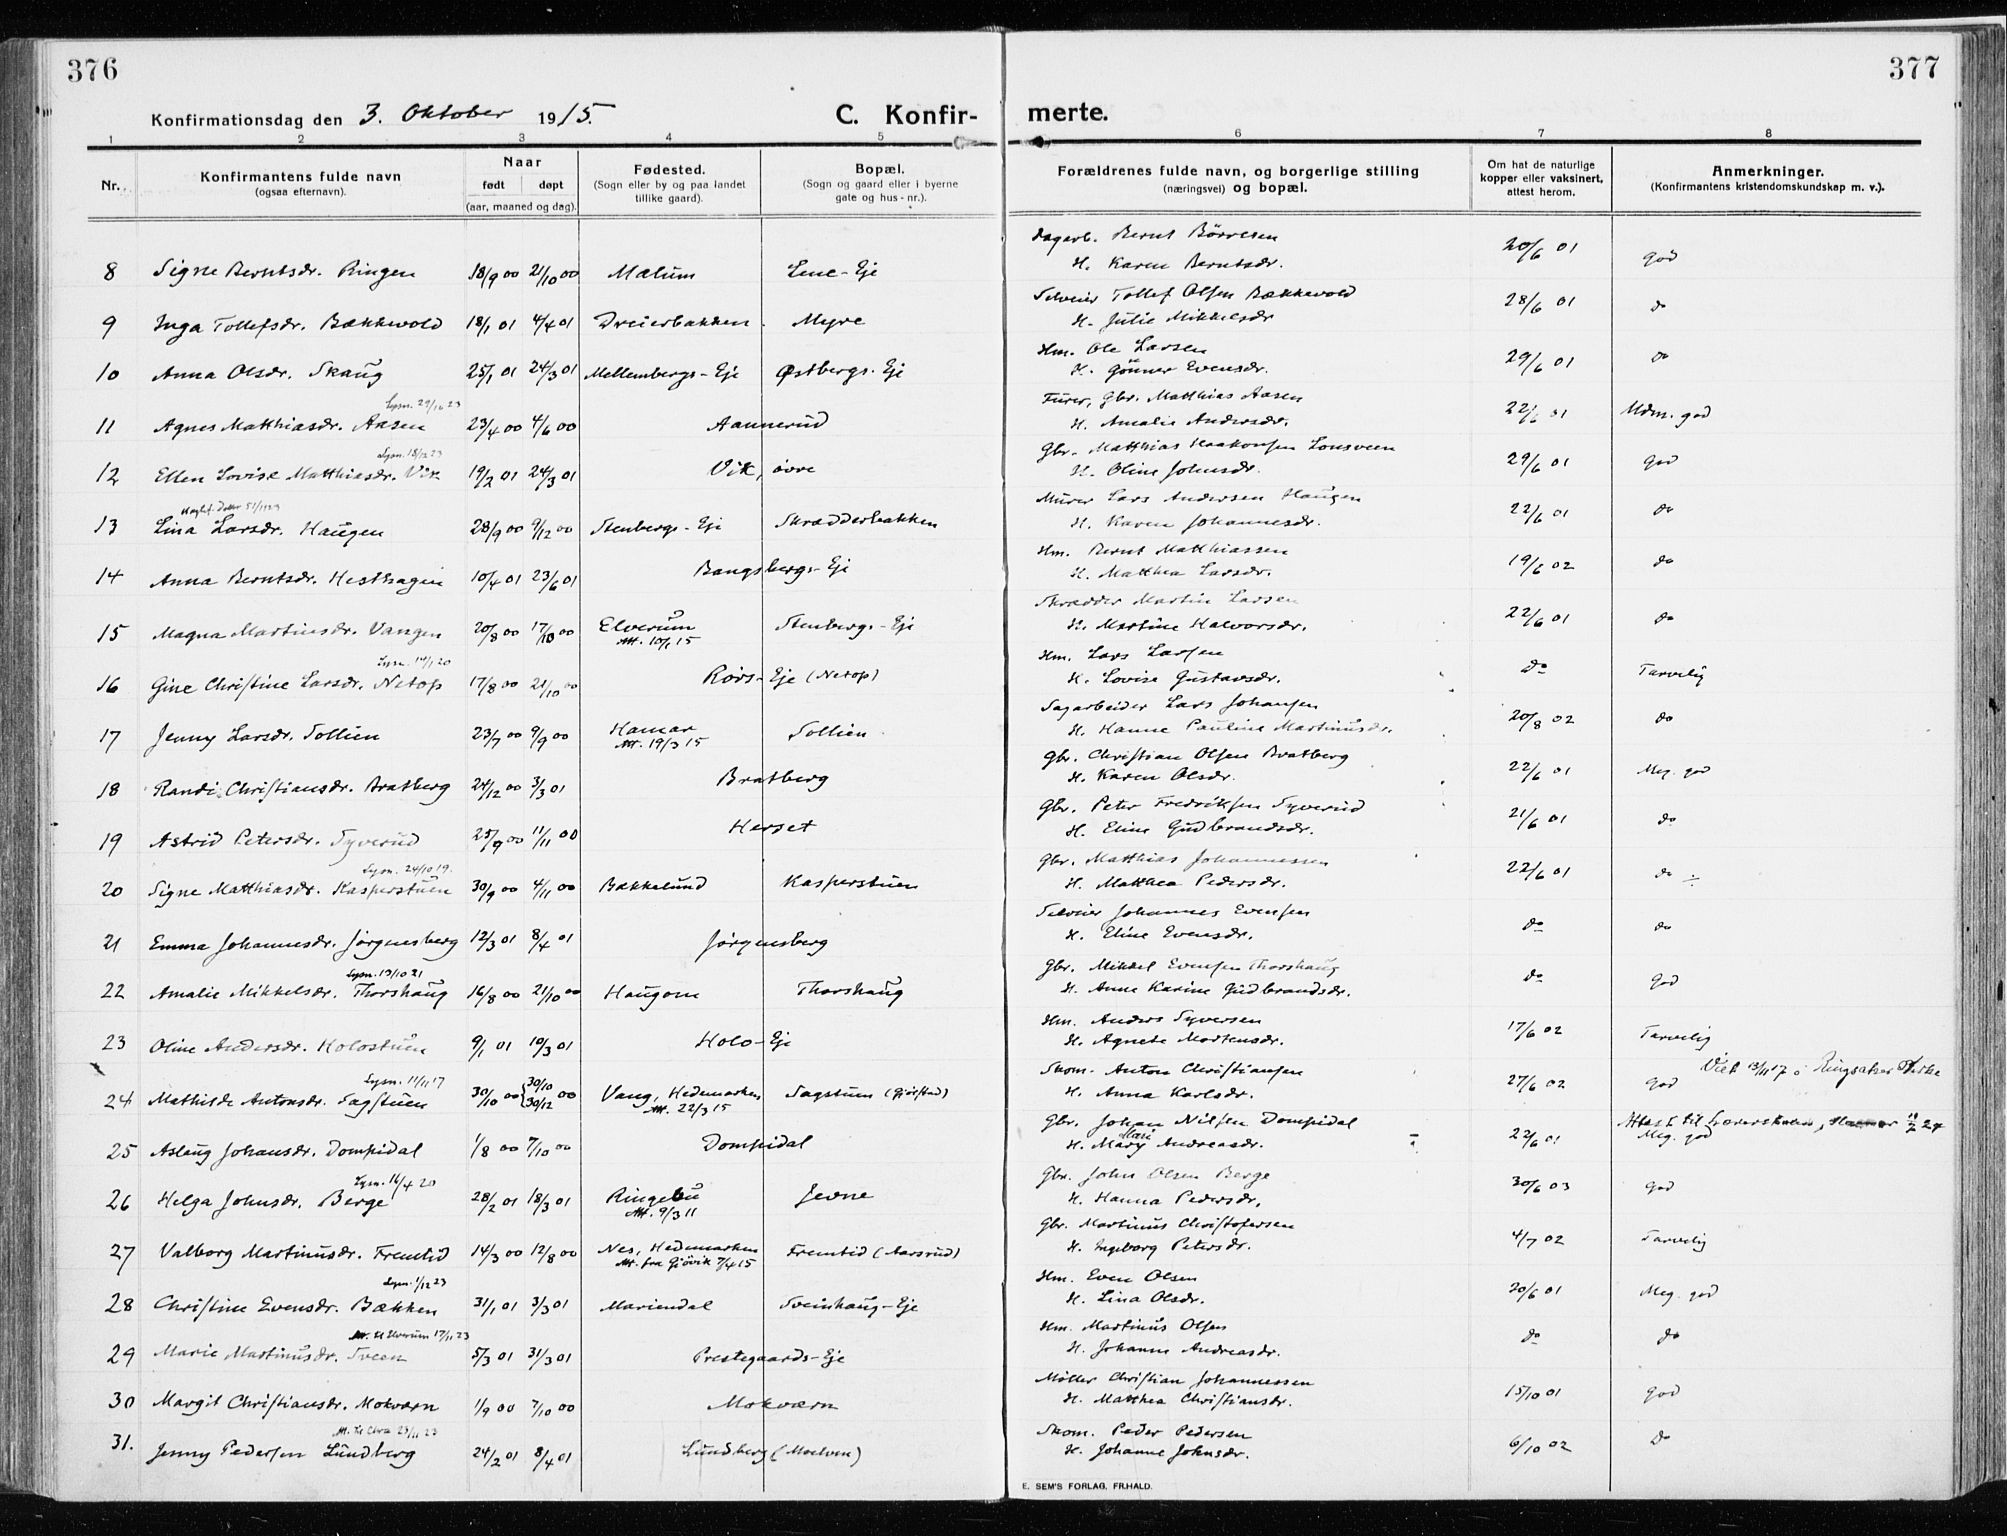 376
377
Konfirmationsdag den 3. Oktober 1915.
C. Konfir-
merte.
1 2 3 4 5 6 7 8
Nr.
Konfirmantens fulde navn
(ogsaa efternavn).
Naar
født døpt
(aar, maaned og dag).
Fødested.
(Sogn eller by og paa landet
tillike gaard).
Bopæl.
(Sogn og gaard eller i byerne
gate og hus-nr.).
Forældrenes fulde navn, og borgerlige stilling
(næringsvei) og bopæl.
Om hat de naturlige
kopper eller vaksinert,
attest herom.
Anmerkninger.
(Konfirmantens kristendomskundskap m. v.).
Dagarb. Bernt Børresen
8 Signe Berntsdr. Ringen 18/9 00 21/10 00 Mælum Lene-Eje H. Karen Berntsdr. 20/6 01 god
Selveier Tollef Olsen Bækkevold
9 Inga Tollefsdr. Bækkevold 18/1 01 4/4 01 Dreierbakken Myre H. Julie Mikkelsdr 28/6 01 do
Hm. Ole Larsen
10 Anna Olsdr. Skaug 25/1 01 24/3 01 Mellembergs-Eje Østbergs-Eje H. Gunner Evensdr. 29/6 01 do
Lysn. 29/10 23
Furer, Gbr. Matthias Aasen
11 Agnes Matthiasdr. Aasen 23/4 00 4/6 00 Aannerud H. Amalie Andersdr. 22/6 01 Udm. god
Lysn. 18/12 23
Gbr. Matthias Haakonsen Lonsveen
12 Ellen Lovise Matthiasdr. Vik 19/2 01 24/3 01 Vik, øvre H. Oline Johnsdr. 29/6 01 God
Murer Lars Andersen Haugen
13 Lina Larsdr. Haugen 28/9 00 9/12 00 Stenbergs-Eje Skrædderbakken H. Karen Johannesdr. 22/6 01 do
Hm. Bernt Matthiassen
14 Anna Berntsdr. Hesthagen 10/4 01 23/6 01 Bangsbergs-Eje H. Matthea Larsdr. 19/6 02 do
Skrædder Martin Larsen
15 Magna Martinsdr. Vangen 20/8 00 17/10 00 Elverum Stenbergs-Eje H. Martine Halvorsdr. 22/6 01 do
Att. 10/1 15
Lysn. 14/1 20
Hm. Lars Larsen
16 Gine Christine Larsdr. Netop 17/8 00 21/10 00 Rørs-Eje (Netop) H. Lovise Gustavsdr. do Tarvelig
Sagarbeider Lars Johansen
17 Jenny Larsdr. Sollien 23/7 00 9/9 00 Hamar Sollien H. Hanne Pauline Martinusdr. 20/8 02 do
Att. 19/3 15
Gbr. Christian Olsen Bratberg
18 Randi Christiansdr. Bratberg 24/12 00 3/3 01 Bratberg H. Karen Olsdr. 22/6 01 Meg. god
Gbr. Peter Fredriksen Syverud
19 Astrid Petersdr. Syverud 25/9 00 11/11 00 Herset H. Eline Gudbrandsdr. 21/6 01 do
Lysn. 24/10 19.
Gbr. Matthias Johannessen
20 Signe Matthiasdr. Kasperstuen 30/9 00 4/11 00 Bækkelund Kasperstuen H. Matthea Pedersdr. 22/6 01 do ÷
Selveier Johannes Evensen
21 Emma Johannesdr. Jørgensberg 12/3 01 8/4 01 Jørgensberg H. Eline Evensdr. do do
Lysn. 13/10 21
Gbr. Mikkel Evensen Thorshaug
22 Amalie Mikkelsdr. Thorshaug 16/8 00 21/10 00 Haugom Thorshaug H. Anne Karine Gudbrandsdr. do God
Hm. Anders Syversen
23 Oline Andersdr. Holostuen 9/1 01 10/3 01 Holo-Eje H. Agnete Mortensdr. 17/6 02 Tarvelig
Lysn. 11/11 17
Skom. Anton Christiansen
Viet 13/11 17 i Ringsaker Kirke
24 Mathilde Antonsdr. Sagstuen 30/10 00 {30/10 30/12 00 Vang, Hedemarken Sagstuen H. Anna Karlsdr. 27/6 02 God
Att. 22/3 15
Gbr. Johan Nilsen Dompidal
25 Aslaug Johansdr. Dompidal 1/8 00 7/10 00 Dompidal H. Mary Andreasdr. 22/6 01 Meg. god
Lysn. 16/4 20
Gbr. John Olsen Berge
26 Helga Johnsdr. Berge 28/2 01 18/3 01 Ringebu Jevne H. Hanna Pedersdr. 30/6 03 God
Att. 9/3 11
Gbr. Martinus Christofersen
27 Valborg Martinusdr. Fremtid 14/3 00 12/8 00 Nes, Hedemarken Fremtid (Aarsrud) H. Ingeborg Petersdr. 4/7 02 Tarvelig
Att. fra Gjøvik 7/4 15
Lysn. 1/12 23
Hm. Even Olsen
28 Christine Evensdr. Bækken 31/1 01 3/3 01 Mariendal Sveinhaug-Eje H. Lina Olsdr. 20/6 01 Meg. god
Att. til Elverum 17/11 23
Hm. Martinus Olsen
29 Marie Martinusdr. Sveen 5/3 01 31/3 01 Prestegaards-Eje H. Johanne Andreasdr. do do
Møller Christian Johannessen
30 Margit Christiansdr. Mokværn 1/9 00 7/10 00 Mokværn H. Matthea Christiansdr. 15/10 01 God
Att. til Chra 23/11 23
Skom. Peder Pedersen
31. Jenny Pedersen Lundberg 24/2 01 8/4 01 Lundberg (Moelven) H. Johanne Johnsdr. 6/10 02 do
E. SEM'S FORLAG, FR.HALD.